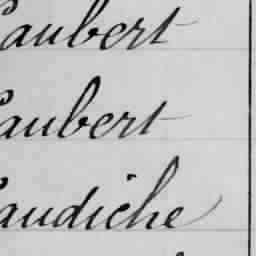 aubert
aubert
audiche